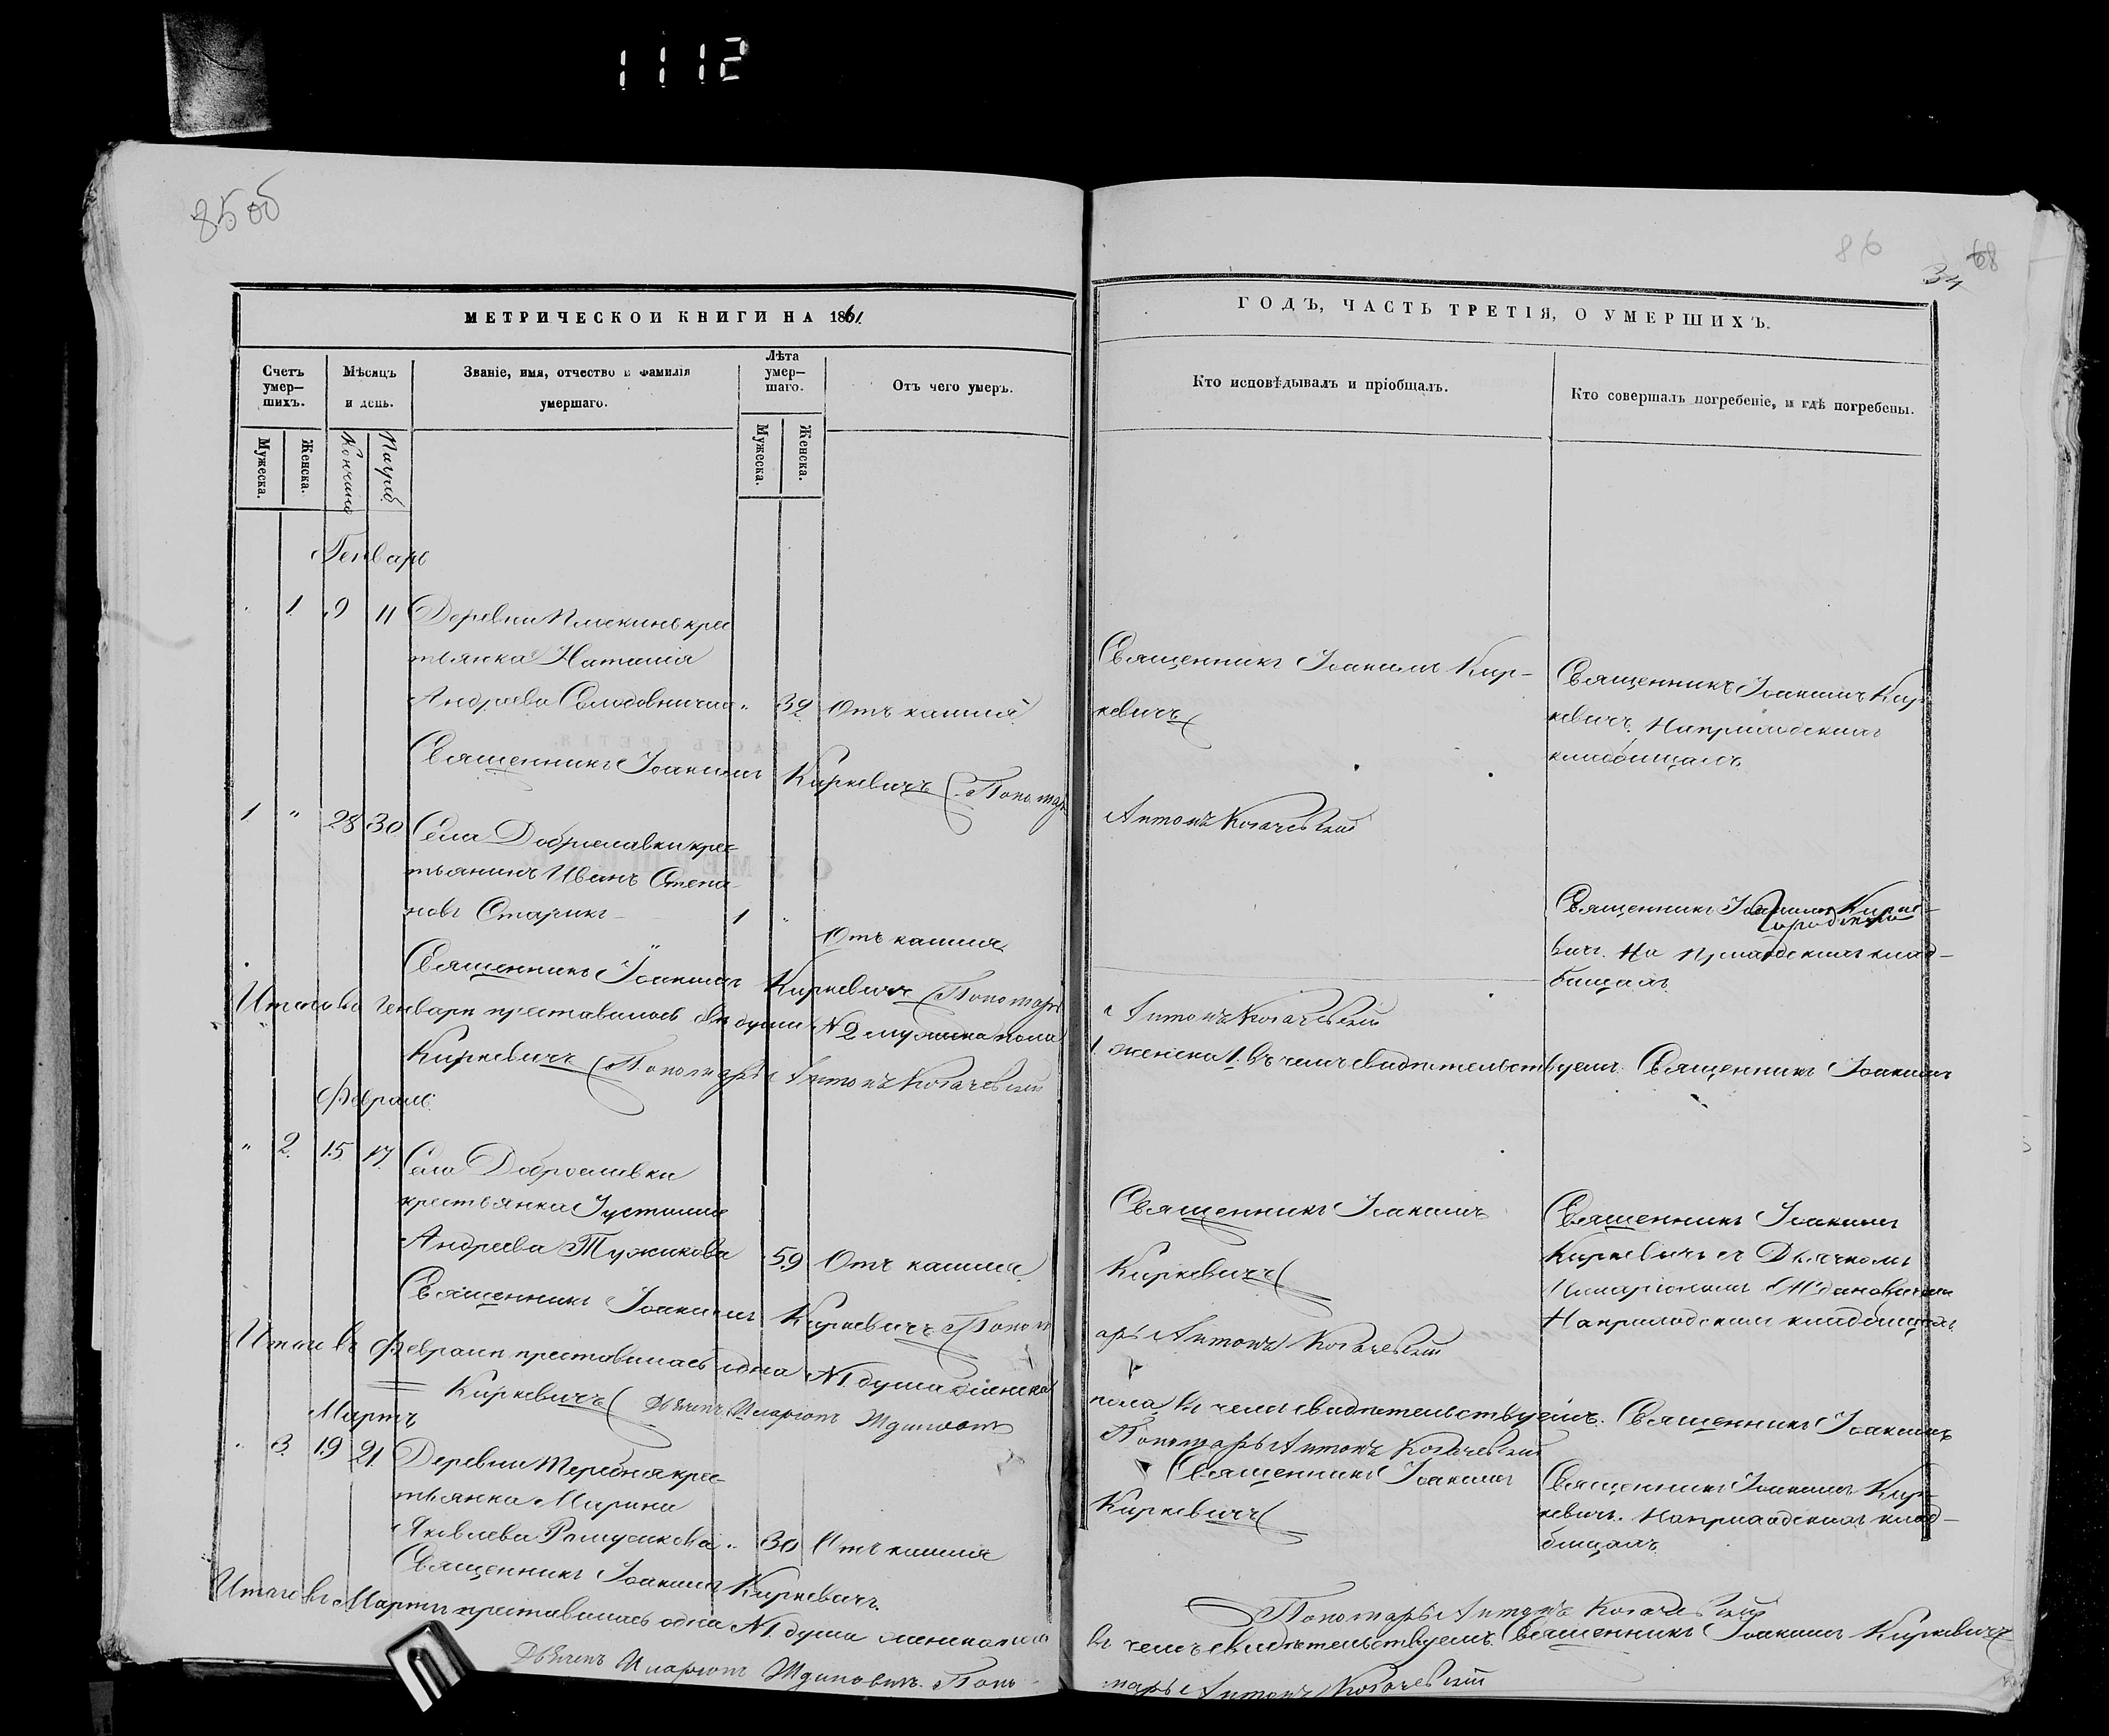 1112
85 об
86
68
34
МЕТРИЧЕСКОИ КНИГИ НА 1861.
ГОДЪ, ЧАСТЬ ТРЕТІЯ, О УМЕРШИХЪ.
Счетъ умер-шихъ.
Мѣсяцъ и день.
Званіе, имя, отчество и фамилія умершаго.
Лѣта умер-шаго.
Отъ чего умеръ.
Кто исповѣдывалъ и пріобщалъ.
Кто совершалъ погребеніе, и гдѣ погребены.
Мужеска.
Женска.
Кончины
Погреб
Мужеска.
Женска.
Генварь
1. 9 11 Деревни Плоскинь крес
тьянка Наталія
Андреева Солодовничая " 32 Отъ кашля
Священникъ Іоакимъ Кир-
кевичъ
Священникъ Іоакимъ Кир
кевичъ. На приходскомъ
кладбищѣ
Священникъ Іоакимъ Киркевичъ Пономарь
Антонъ
1. " 28 30 Села Доброславки крес-
тьянинъ Иванъ Степа
новъ Старикъ 1 "
Отъ кашля
Священникъ Іоакимъ Кирке-
вичъ. На приходскомъ клад-
бищѣ
Священникъ Іоакимъ Киркевичъ Пономарь
Антонъ
Итого въ Генварѣ преставилось душъ № 2 мужеска пола
1. женска 1. въ чемъ свидѣтельствуемъ. Священникъ Іоакимъ
Киркевичъ Пономарь Антонъ
Февраль
" 2. 15 17 Села Доброславки
крестьянка Іустинія
Андреева Тужикова 59 Отъ кашля
Священникъ Іоакимъ
Киркевичъ
Священникъ Іоакимъ
Киркевичъ съ Дьячкомъ
Иларіономъ Ждановичемъ
На приходскомъ кладбищѣ
Священникъ Іоакимъ Киркевичъ Поном
арь Антонъ
Итого въ Февралѣ преставилась одна № 1. душа женска
пола въ чемъ свидѣтельствуемъ. Священникъ Іоакимъ
Киркевичъ Дьячекъ Иларіонъ
Пономарь Антонъ
Мартъ
3. 19 21. Деревни Теребня крес-
тьянка Марина
Яковлева " 30 Отъ кашля
Священникъ Іоакимъ
Киркевичъ
Священникъ Іоакимъ Кир-
кевичъ. На приходскомъ клад-
бищѣ
Священникъ Іоакимъ Киркевичъ.
Пономарь Антонъ
Итого въ Мартѣ преставилась одна № 1. душа женска пола
въ чемъ свидѣтельствуемъ. Священникъ Іоакимъ Киркевичъ
Дьячекъ Иларіонъ Ждановичъ. Поно-
марь Антонъ